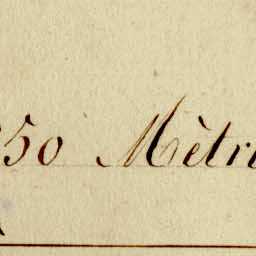 50 Mètr